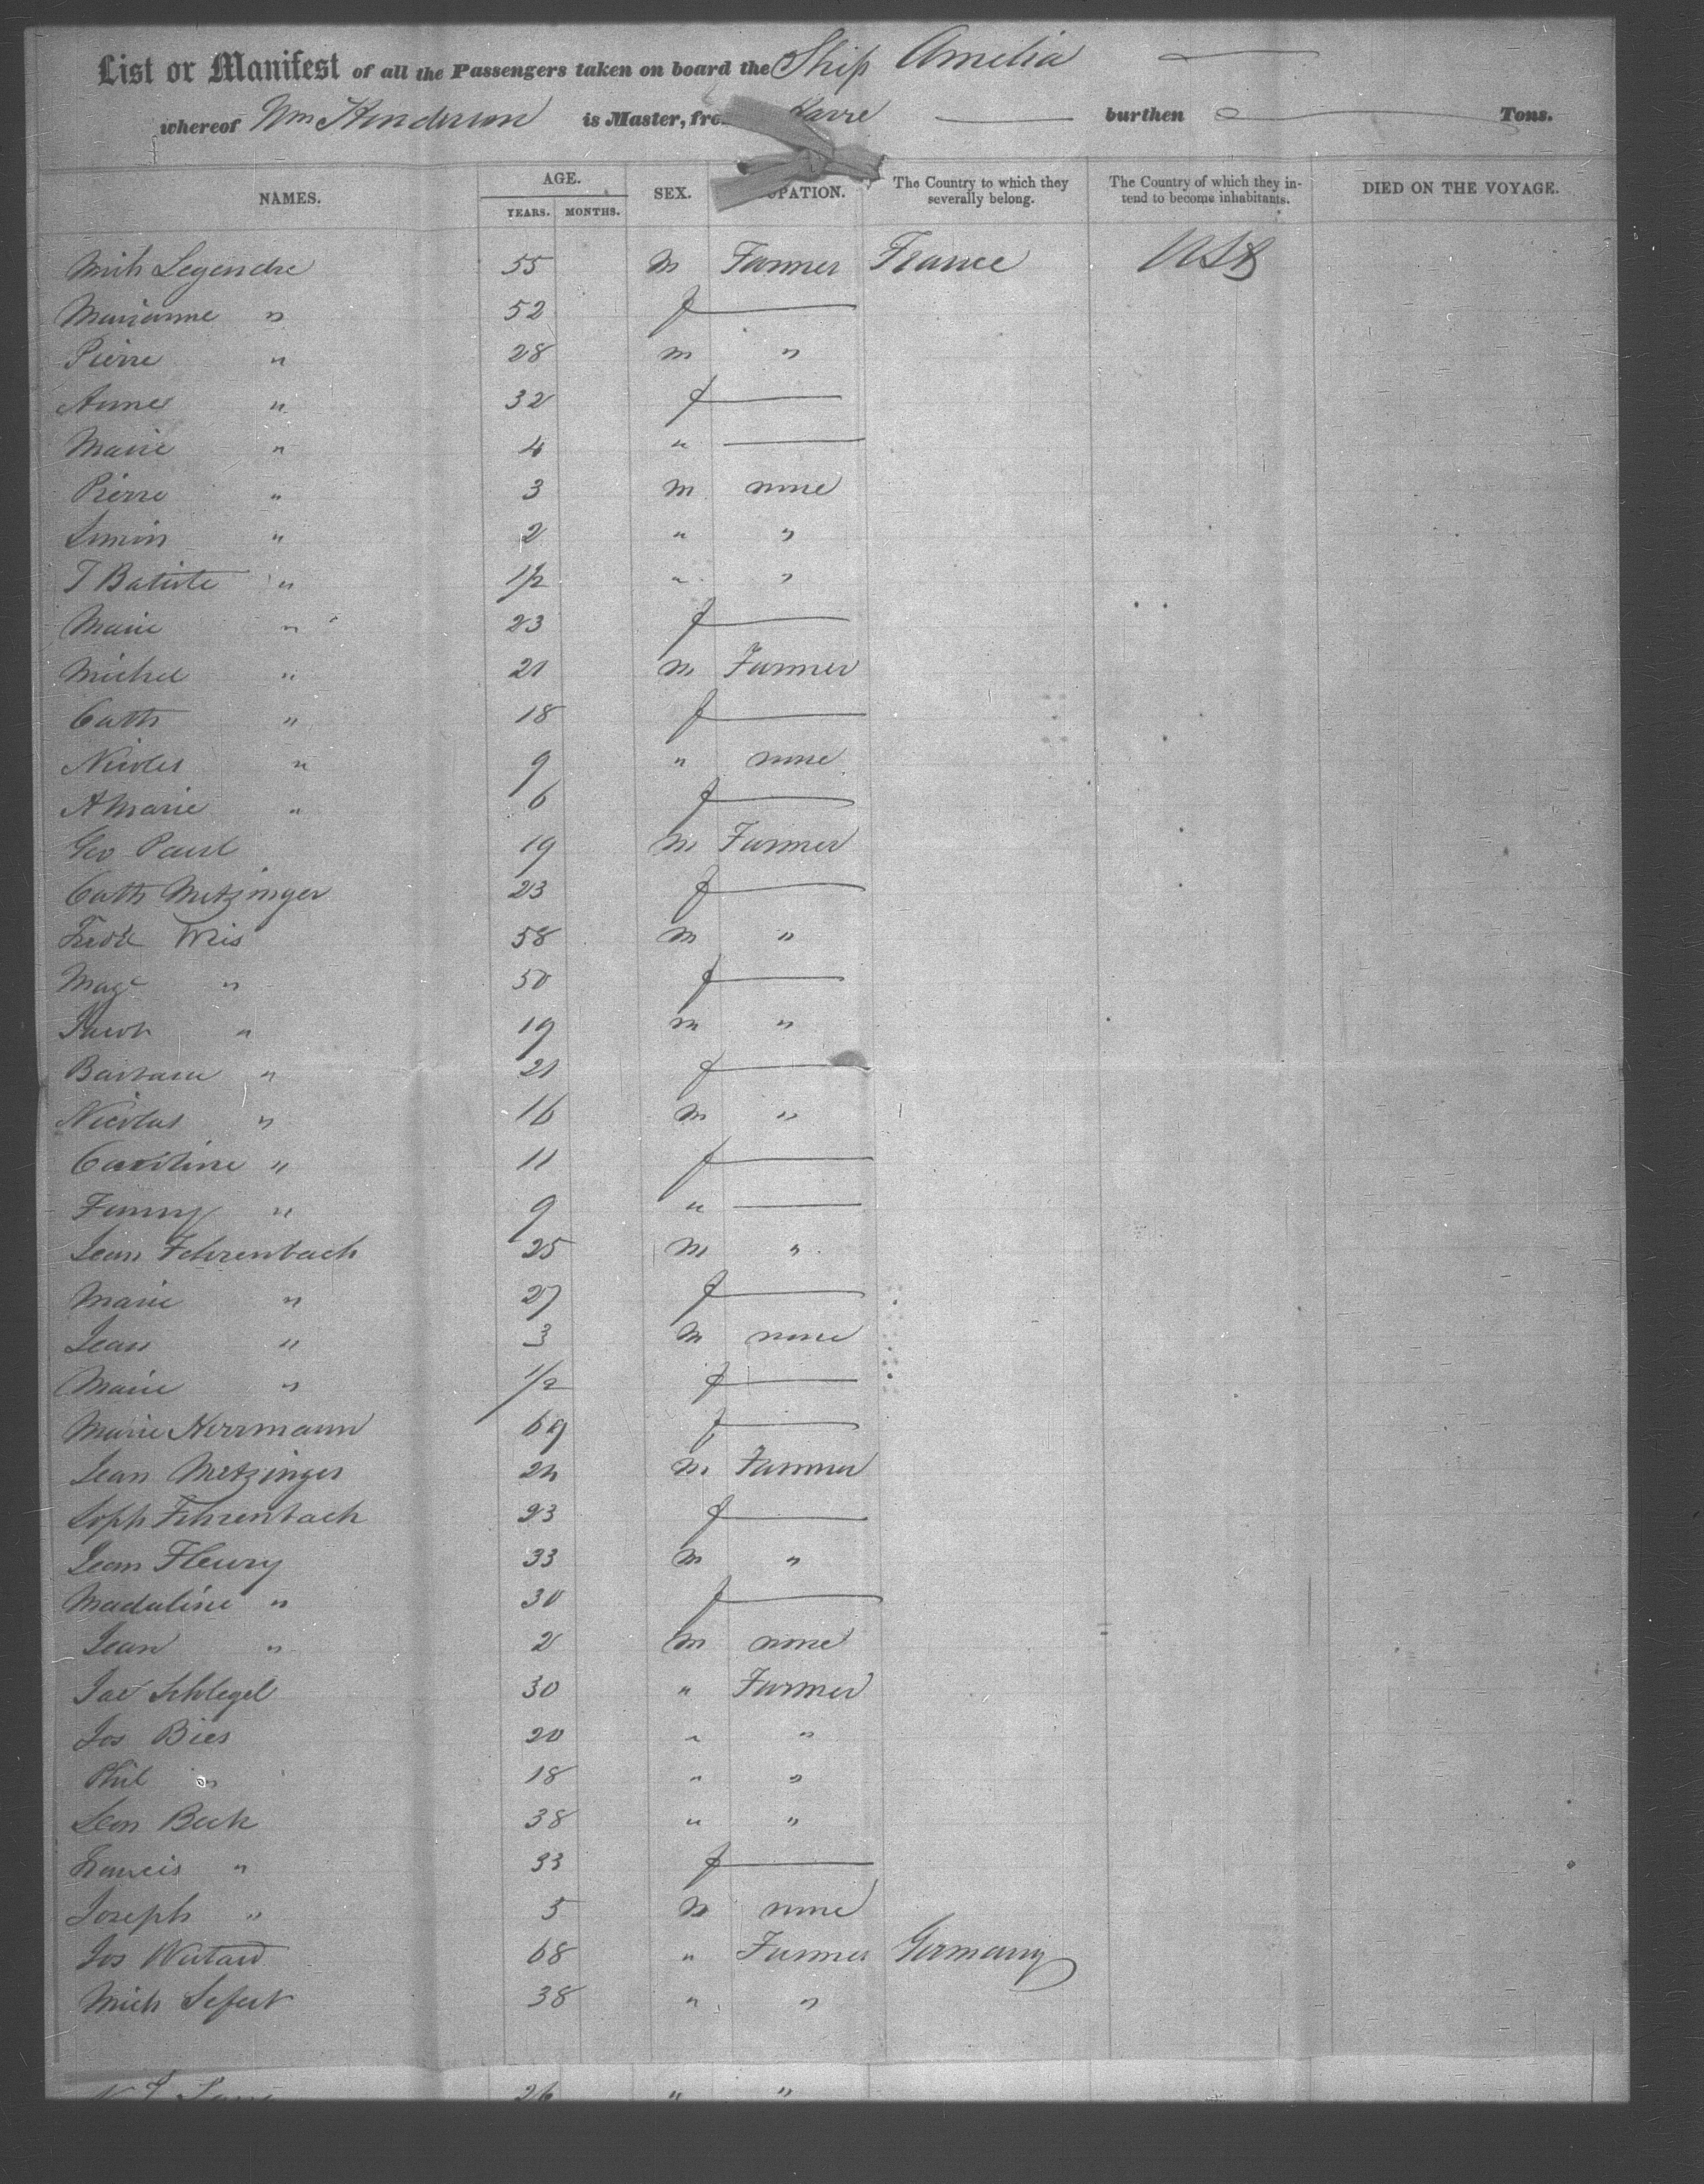 List or Manifest of all the Passengers taken on board the Ship Amelia
whereof Wm Henderson is Master, fro Havre burthen Tons.
NAMES. AGE. YEARS. MONTHS. SEX. UPATION. The Country to which they severally belong. The Country of which they intend to become inhabitants. DIED ON THE VOYAGE.
Mich Legendre 55 m Farmer France USA
Marianne " 52 f
Pierre " 28 m "
Anne " 32 f
Marie " 4 "
Pierre " 3 m none
Simon " 2 " "
J Batiste " 1/2 " "
Marie " 23 f
Michel " 21 m Farmer
Cath " 18 f
Nicolas " 9 " none
A Marie " 6 f
Geo Paul 19 m Farmer
Cath Metzinger 23 f
Fredk Weis 58 m "
Magt " 50 f
Jacob " 19 m "
Barbara " 21 f
Nicolas " 16 m "
Caroline " 11 f
Fanny " 9 "
Jean Fehrenbach 25 m "
Marie " 27 f
Jean " 3 m none
Marie " 1/2 f
Marie Herrmann 69 f
Jean Metzinger 24 m Farmer
Soph Fehrenbach 23 f
Jean Fleury 33 m "
Madaline " 30 f
Jean " 2 m none
Jac Schlegel 30 " Farmer
Jos Bies 20 " "
Phil " 18 " "
Leon Beck 38 " "
Francis " 33 f
Joseph " 5 m none
Jos 68 " Farmer Germany
Mich Sefert 38 " "
26 " "